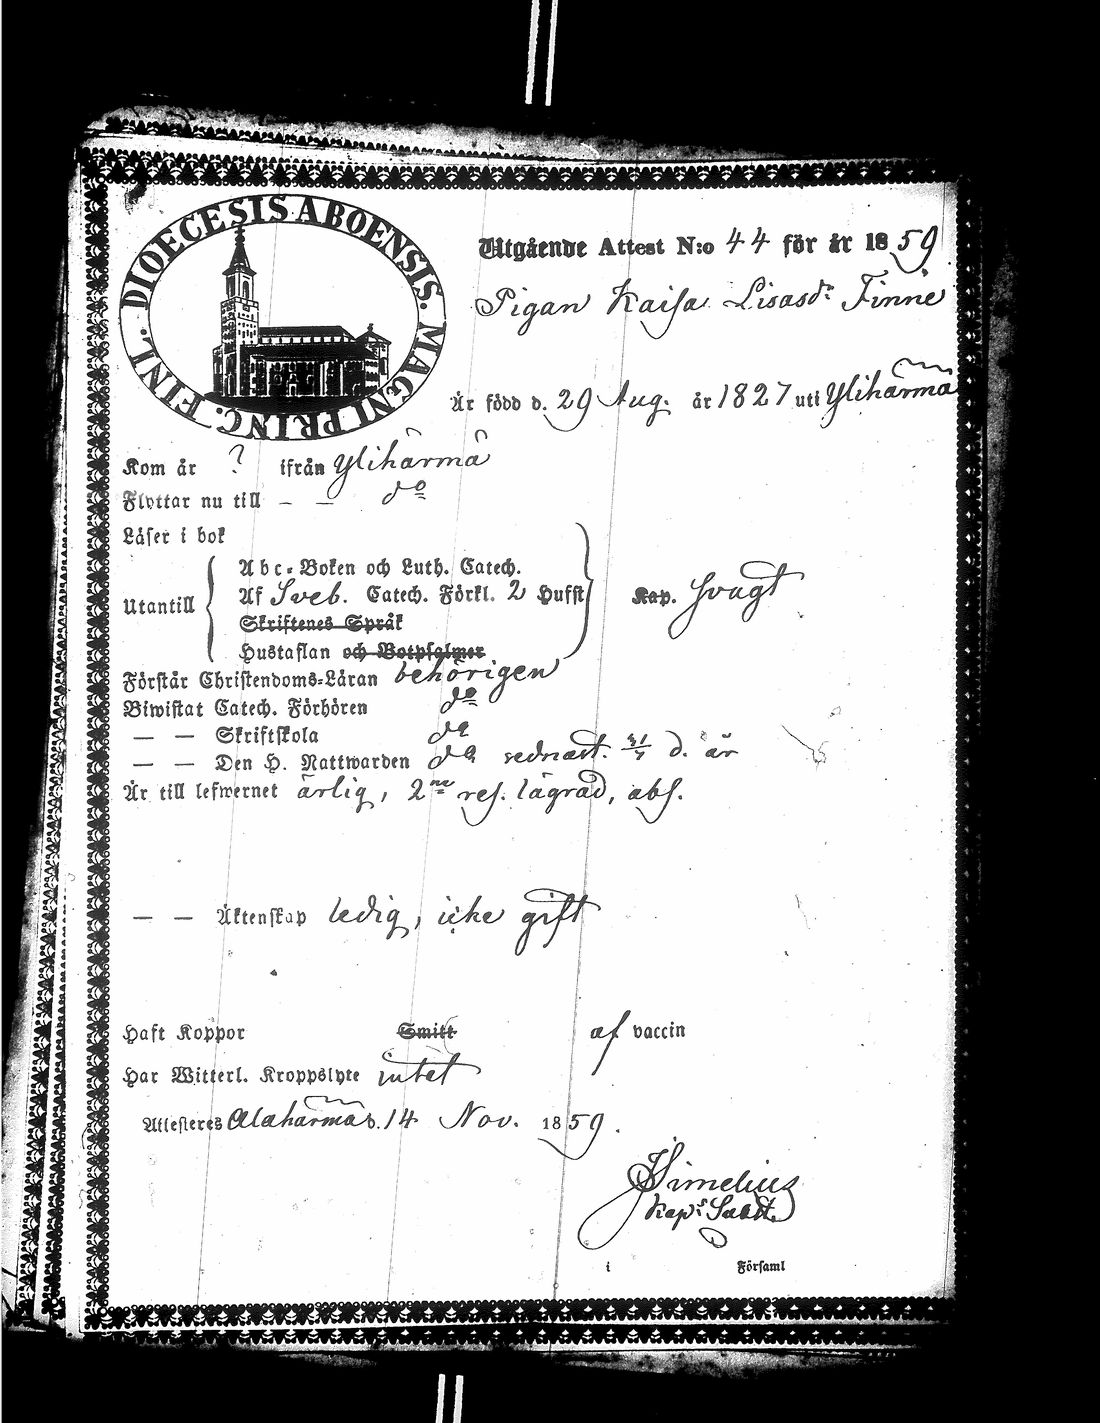 DIOECESIS ABOENSIS. MAGNI PRINC. FINL.
Utgående Attest N:o 44 för år 1859
Pigan Kaisa Lisasdr Finne
Är född d. 29 Aug. år 1827 uti Ylihärmä
Kom år ? ifrån Ylihärmä
Flyttar nu till — — do
Läser i bok
Abc-Boken och Luth. Catech.
Utantill Af Sveb. Catech. Förkl. 2 Hufst Kap. svagt
Skriftenes Språk
Hustaflan och Botpsalmer
Förstår Christendoms-Läran behörigen
Biwistat Catech. Förhören do
— — Skriftskola do
— — Den H. Nattwarden do sednast. 31/7 d. år
Är till lefwernet ärlig, 2ne res. lägrad, abs.
— — Äktenskap ledig, icke gift
Haft Koppor Smitt af vaccin
Har Witterl. Kroppslyte intet
Attesteres Alahärmä d. 14 Nov. 1859.
Simelius
Kap: Subst.
i Församl